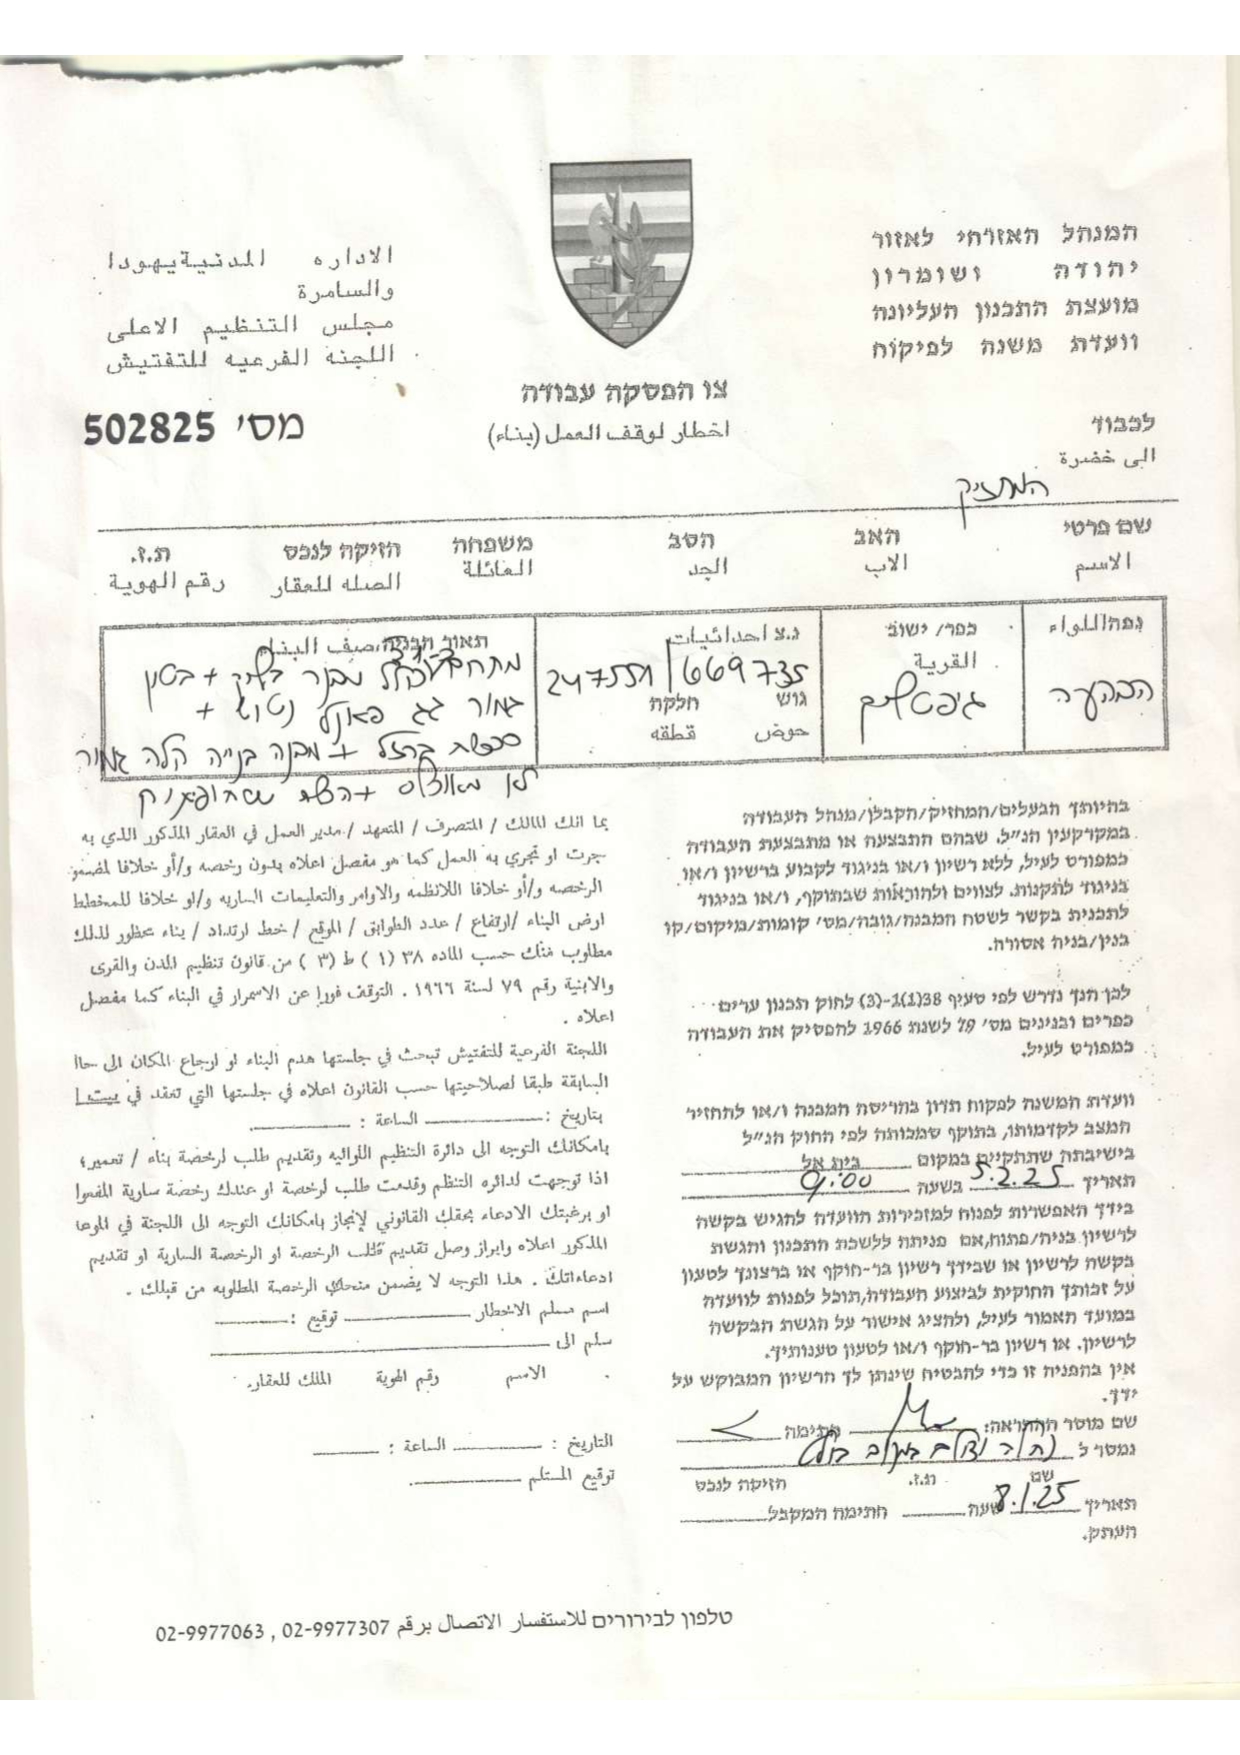 המנהל האזרחי לאזור
יהודה ושומרון
מועצת התכנון העליונה
וועדת משנה לפיקוח
الاداره المدنية يهودا
والسامرة
مجلس التنظيم الاعلى
اللجنة الفرعيه للتفتيش
צו הפסקה עבודה
اخطار لوقف العمل (بناء)
מס' 502825
לכבוד
الى حضرة
המחזיק
שם פרטי האב הסב משפחה הזיקה לנכס ת.ז.
الاسم الاب الجد العائلة الصله للعقار رقم الهوية
נפה/اللواء
הבקעה
כפר/ ישוב
القرية
ג'יפטליק
נ.צ احداثيات
247551/669735
גוש חלקה
حوض قطقه
תאור הבניה
מבנה בלוק + בטון
גמור גג פאנל
סככת ברזל + מבנה בנייה קלה גמור
לא מאוכלס
בהיותך הבעלים/המחזיק/הקבלן/מנהל העבודה
במקרקעין הנ"ל, שבהם התבצעה או מתבצעת העבודה
כמפורט לעיל, ללא רשיון ו/או בניגוד לקבוע ברשיון ו/או
בניגוד לתקנות, לצווים ולהוראות שבתוקף, ו/או בניגוד
לתכנית בקשר לשטח המבנה/גובה/מס' קומות/מיקום/קו
בנין/בניה אסורה.
לכן הנך נדרש לפי סעיף 38(1)ו-(3) לחוק תכנון ערים
כפרים ובנינים מס' 79 לשנת 1966 להפסיק את העבודה
כמפורט לעיל.
וועדת המשנה לפקוח תדון בהריסת המבנה ו/או להחזיר
המצב לקדמותו, בתוקף שמכותה לפי החוק הנ"ל
בישיבתה שתתקיים במקום בית אל
תאריך 5.2.25 בשעה 9:00
בידך האפשרות לפנות למזכירות הוועדה להגיש בקשה
לרשיון בניה/פתוח,אם פניתה ללשכת התכנון והגשת
בקשה לרשיון או שבידך רשיון בר-תוקף או ברצונך לטעון
על זכותך החוקית לביצוע העבודה,תוכל לפנות לוועדה
במועד האמור לעיל, ולהציג אישור על הגשת הבקשה
לרשיון. או רשיון בר-תוקף ו/או לטעון טענותיך.
אין בהפניה זו כדי להבטיח שינתן לך הרשיון המבוקש על
ידך.
שם מוסר ההתראה: חתימה
נמסר ל
שם ת.ז. הזיקה לנכס
תאריך 8.1.25 שעה חתימה המקבל
העתק.
بما انك المالك / المتصرف / المتعهد / مدير العمل في العقار المذكور الذي به
جرت او تجري به العمل كما هو مفصل اعلاه بدون رخصه و/أو خلافا لمضمو
الرخصه و/أو خلافا للانظمه والاوامر والتعليمات الساريه و/او خلافا للمخطط
ارض البناء /ارتفاع / عدد الطوابق / الموقع / خط ارتداد / بناء محظور لذلك
مطلوب منك حسب الماده ٣٨ (١) ط (٣) من قانون تنظيم المدن والقرى
والابنية رقم ٧٩ لسنة ١٩٦٦ . التوقف فورا عن الاسمرار في البناء كما مفصل
اعلاه .
اللجنة الفرعية للتفتيش تبحث في جلستها هدم البناء او ارجاع المكان الى حاا
السابقة طبقا لصلاحيتها حسب القانون اعلاه في جلستها التي تعقد في بيت ا
بتاريخ : الساعة :
بامكانك التوجه الى دائرة التنظيم اللوائيه وتقديم طلب لرخصة بناء / تعمير؛
اذا توجهت لدائره التنظم وقدمت طلب لرخصة او عندك رخصة سارية المفعوا
او برغبتك الادعاء بحقك القانوني لإنجاز بامكانك التوجه الى اللجنة في الموعا
المذكور اعلاه وابراز وصل تقديم طلب الرخصة او الرخصة السارية او تقديم
ادعاءاتك . هذا التوجه لا يضمن منحك الرخصة المطلوبه من قبلك .
اسم مسلم الاخطار توقيع :
سلم الى
الاسم رقم الهوية الملك للعقار.
التاريخ : الساعة :
توقيع المستلم
טלפון לבירורים للاستفسار الاتصال برقم 02-9977307 , 02-9977063